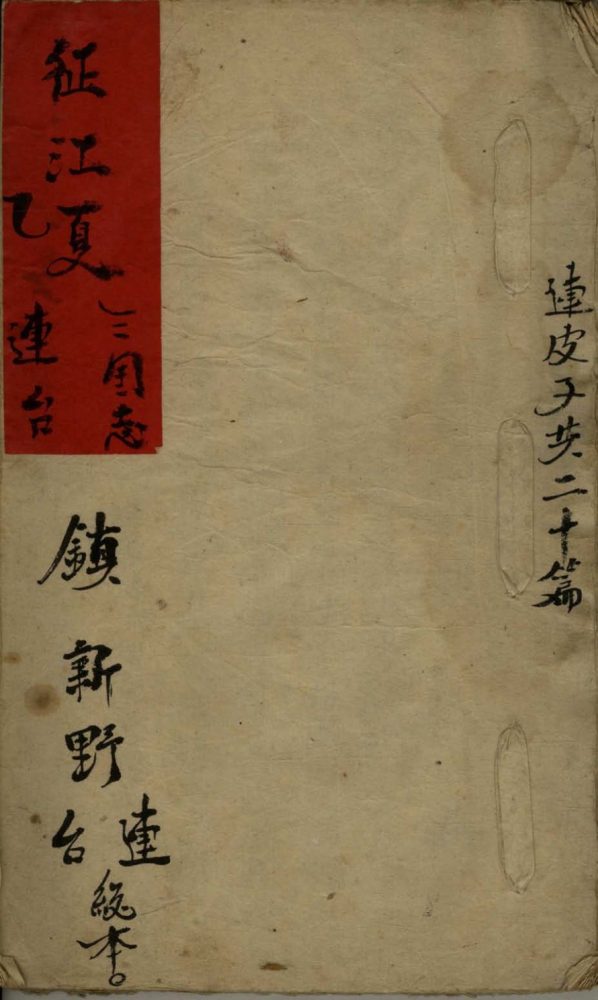 連皮子共二十篇
征江夏
三國志
乙
連台
鎮新野
連
台
總本。